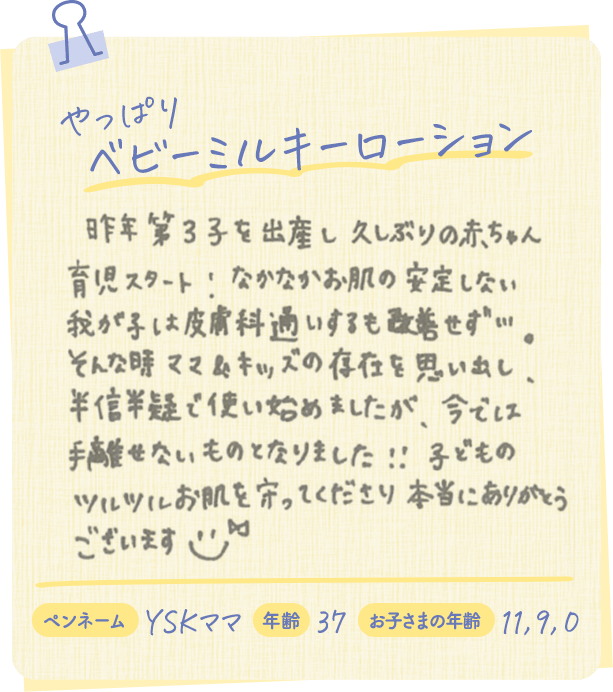 やっぱり
ベビーミルキーローション
昨年第3子を出産し 久しぶりの赤ちゃん
育児スタート! なかなかお肌の安定しない
我が子は皮膚科通いするも改善せず…。
そんな時ママ&キッズの存在を思い出し、
半信半疑で使い始めましたが、今では
手離せないものとなりました!! 子どもの
ツルツルお肌を守ってくださり本当にありがとう
ございます
ペンネーム YSKママ 年齢 37 お子さまの年齢 11,9,0